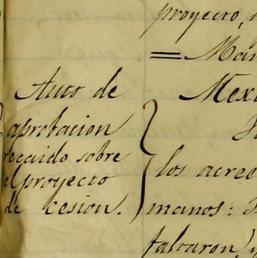 proyecto,
= Mán
Auto de
aprobacion
recaido sobre
el proyecto
de cesion.
Mexi
los acree
manos:
faltaron)